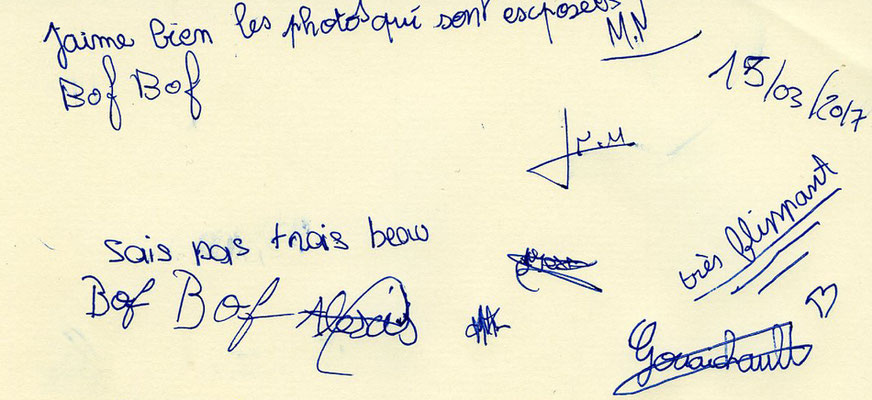 Jaime bien les photos qui sont esxposées
M.N
Bof Bof
15/03/2017
sais pas trais beau
Bof Bof Alexis
très flippant